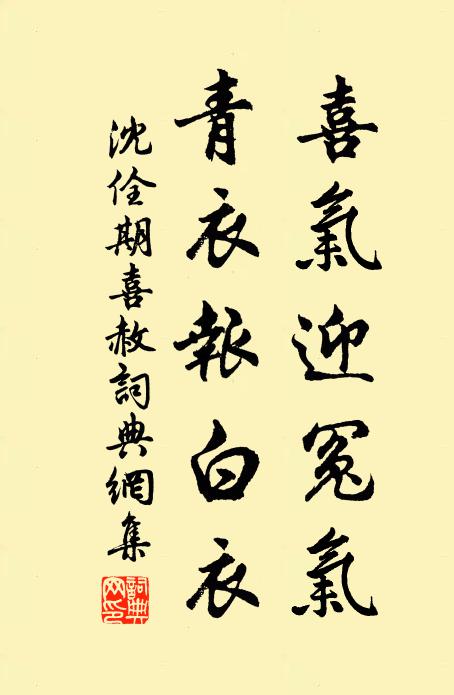 喜氣迎冤氣
青衣報白衣
沈佺期喜赦詞典網集
詞典網印